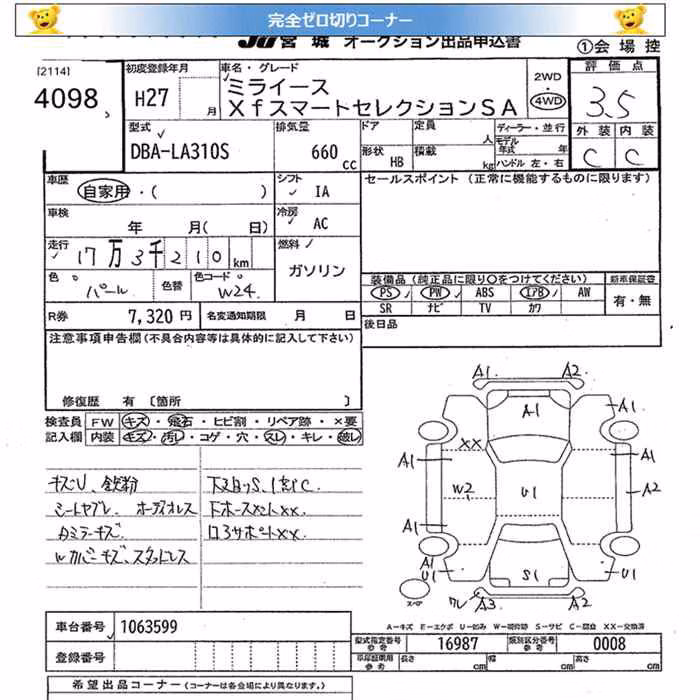 完全ゼロ切りコーナー
JU宮城 オークション出品申込書
①会場控
[2114]
4098
初度登録年月
H27 月
車名・グレード
ミライース
XfスマートセレクションSA
2WD
・
4WD
評価点
3.5
外装 内装
C C
型式
DBA-LA310S
排気量
660 cc
ドア
定員 人
形状 HB
積載 kg
ディーラー・並行
モデル年式 年
ハンドル 左・右
車歴
自家用・( )
シフト
IA
セールスポイント (正常に機能するものに限ります)
車検
年 月( 日)
冷房
AC
走行
17万3千210km
燃料
ガソリン
色
パール
色替
色コード
W24
装備品 (純正品に限り○をつけてください)
新車保証書
PS PW ABS エアB AW
SR ナビ TV カワ
有・無
R券 7,320円
名変通知期限 月 日
後日品
注意事項申告欄(不具合内容等は具体的に記入して下さい)
修復歴 有 〔箇所 〕
検査員記入欄
FW キズ・飛石・ヒビ割・リペア跡・×要
内装 キズ・汚レ・コゲ・穴・スレ・キレ・破レ
キズU、鉄粉
シートヤブレ、
下廻りS、1部C
Wカバーキズ、スタッドレス
A1 A2
A1 A1
XX
A1 A1
W2 U1 A2
A1
A1 U1 S1 U1
スペア
ワレ A3 A2
A-キズ E-エクボ U-凹み W-補修跡 S-サビ C-腐食 XX-交換済
車台番号 1063599
型式指定番号参考 16987
類別区分番号参考 0008
登録番号
車庫証明用参考 長さ cm 幅 cm 高さ cm
希望出品コーナー (コーナーは各会場により異なります。)